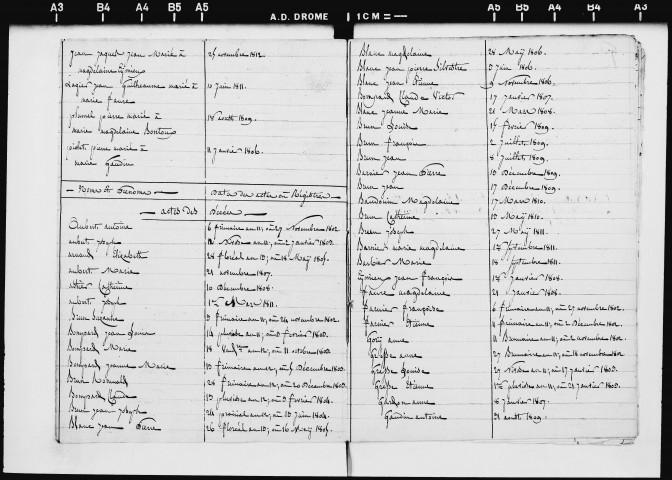 A3 B4 A4 B5 A5 A.D. DROME 1 CM = A5 B5 A4 B4 A3
jean jaques jean Marié à
magdelaine 25 novembre 1812.
Lagier jean Guilheaume marié à
marie faure 10 juin 1811.
plumel pierre marié à
marie magdelaine Bontoux 18 août 1809.
pierre marié à
marie Gaudin 11 janvier 1806.
Noms et Prénoms Date des actes ou Registres
actes des Décès
Aubert antoine 6 frimaire an 11, ou 27 Novembre 1802.
aubert joseph 12 Nivose an 11, ou 2 janvier 1803.
arnaud Elizabeth 28 floréal an 13, ou 18 Mai 1805.
aubert Marie 21 novembre 1807.
Catherine 10 Décembre 1808.
aubert joseph 1er Mars 1811.
Brun Suzanne 3 frimaire an 11, ou 24 novembre 1802.
Bompard jean Louis 14 pluviose an 11, ou 3 février 1803.
Bompard Marie 18 Vend.re an 12, ou 11 octobre 1803.
Bompard jeanne Marie 13 frimaire an 12, ou 5 Décembre 1803.
Brun 24 frimaire an 12, ou 16 Décembre 1803.
Bompard Claude 13 pluviose an 12, ou 3 février 1804.
Brun jean joseph 21 prairial an 12, ou 10 juin 1804.
Blanc jean Pierre 26 floréal an 13, ou 16 Mai 1805.
Blanc magdelaine 28 Mai 1806.
Blanc jean pierre Silvestre 3 juin 1806.
Blanc jean Etienne 9 Novembre 1806.
Bompard Claude Victor 17 janvier 1807.
Blanc jeanne Marie 21 Mars 1808.
Brun Louise 15 février 1809.
Brun françoise 2 juillet 1809.
Brun jean 8 juillet 1809.
Barnier jean Pierre 10 Décembre 1809.
Brun jean 17 Décembre 1809.
Baudouin Magdelaine 17 Mars 1810.
Brun Catherine 10 Mai 1810.
Brun joseph 27 Mai 1811.
Barnier marie magdelaine 1er septembre 1811.
Barbier Marie 18 septembre 1811.
jean françois 12 janvier 1808.
faure magdelaine 21 janvier 1808.
françoise 6 frimaire an 11, ou 27 novembre 1802.
Etienne 11 frimaire an 11, ou 2 Décembre 1802.
anne 11 Brumaire an 11, ou 2 novembre 1802.
Gresse anne 27 Brumaire an 11, ou 18 novembre 1802.
Gresse Louise 27 Nivose an 11, ou 17 janvier 1803.
Gresse Etienne 1er pluviose an 11, ou 21 janvier 1803.
anne 8 janvier 1807.
Gaudin antoine 31 août 1809.